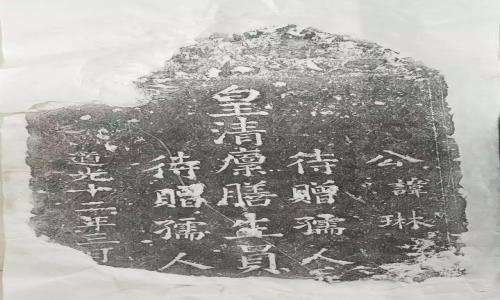 公諱琳
待贈孺人
皇清廩膳生員
待贈孺人
道光十二年二